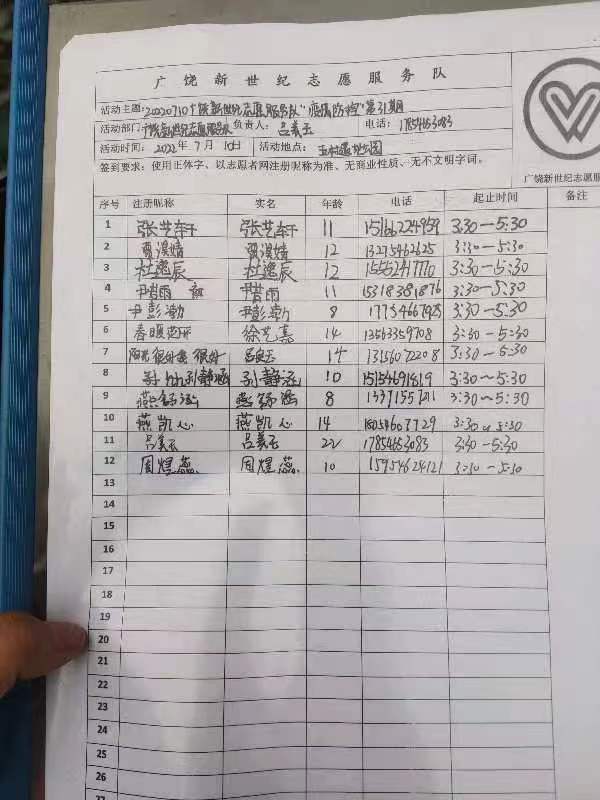 广饶新世纪志愿服务队
活动主题: 20220710广饶新世纪志愿服务队"疫情防控"第31期
活动部门: 广饶新世纪志愿服务队 负责人: 吕美玉 电话: 17854653083
活动时间: 2022年7月10日 活动地点:
签到要求: 使用正体字、以志愿者网注册昵称为准、无商业性质、无不文明字词。
广饶新世纪志愿服
序号 注册昵称 实名 年龄 电话 起止时间 备注
1 张艺轩 张艺轩 11 15166224959 3:30-5:30
2 贾淏婧 贾淏婧 12 13275462625 3:30-5:30
3 杜逸辰 杜逸辰 12 15552417770 3:30-5:30
4 尹惜雨 尹惜雨 11 15318381876 3:30-5:30
5 尹彭渤 尹彭渤 8 3:30-5:30
6 春暖花开 徐艺嘉 14 13563359708 3:30-5:30
7 14 13156072208 3:30-5:30
8 孙静涵 孙静涵 10 15154691819 3:30~5:30
9 8 3:30~5:30
10 燕凯心 燕凯心 14 18054607729 3:30-5:30
11 吕美玉 吕美玉 22 17854653083 3:30-5:30
12 周煜蕊 周煜蕊 10 15954624121 3:30-5:30
13
14
15
16
17
18
19
20
21
22
23
24
25
26
27